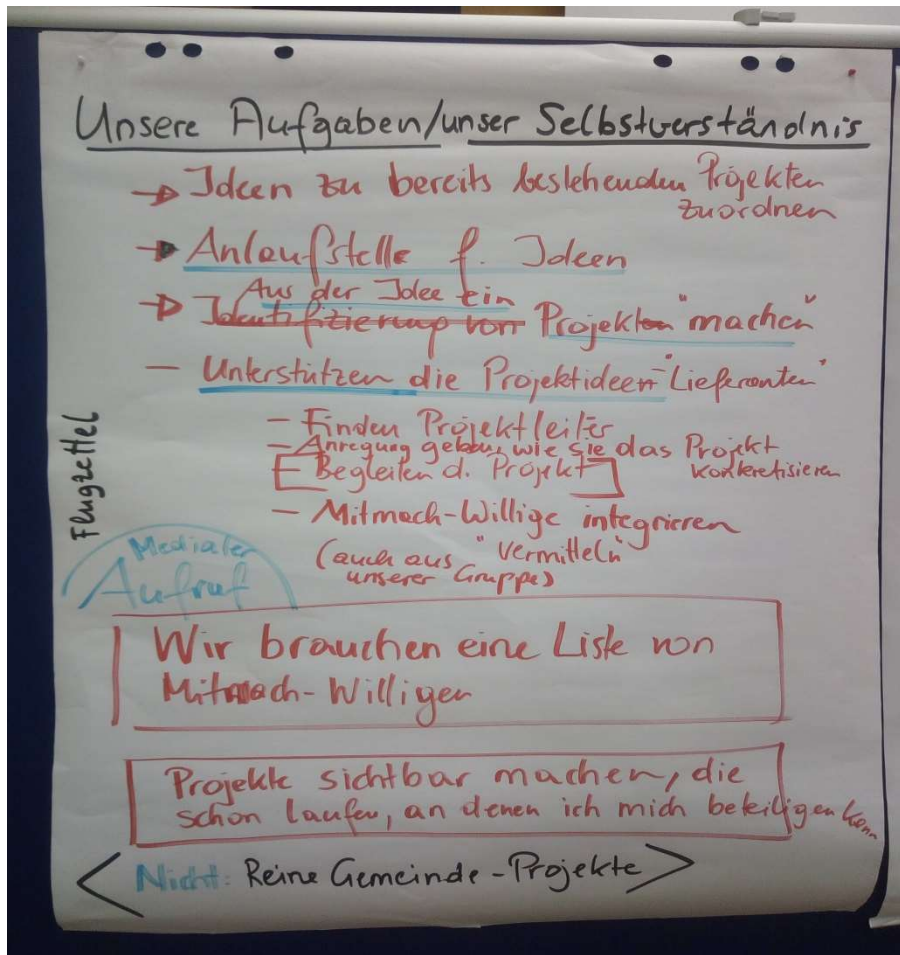 Unsere Aufgaben/unser Selbstverständnis
→ Ideen zu bereits bestehenden Projekten
zuordnen
→ Anlaufstelle f. Ideen
Aus der Idee ein
→ Identifizierung von Projekten "machen"
– Unterstützen die Projektideen-"Lieferanten"
– Finden Projektleiter
– Anregung geben, wie sie das Projekt
konkretisieren
[Begleiten d. Projekt]
– Mitmach-Willige integrieren
"vermitteln"
(auch aus
unserer Gruppe)
Flugzettel
Medialer
Aufruf
Wir brauchen eine Liste von
Mitmach-Willigen
Projekte sichtbar machen, die
schon laufen, an denen ich mich beteiligen kann
< Nicht: Reine Gemeinde-Projekte >